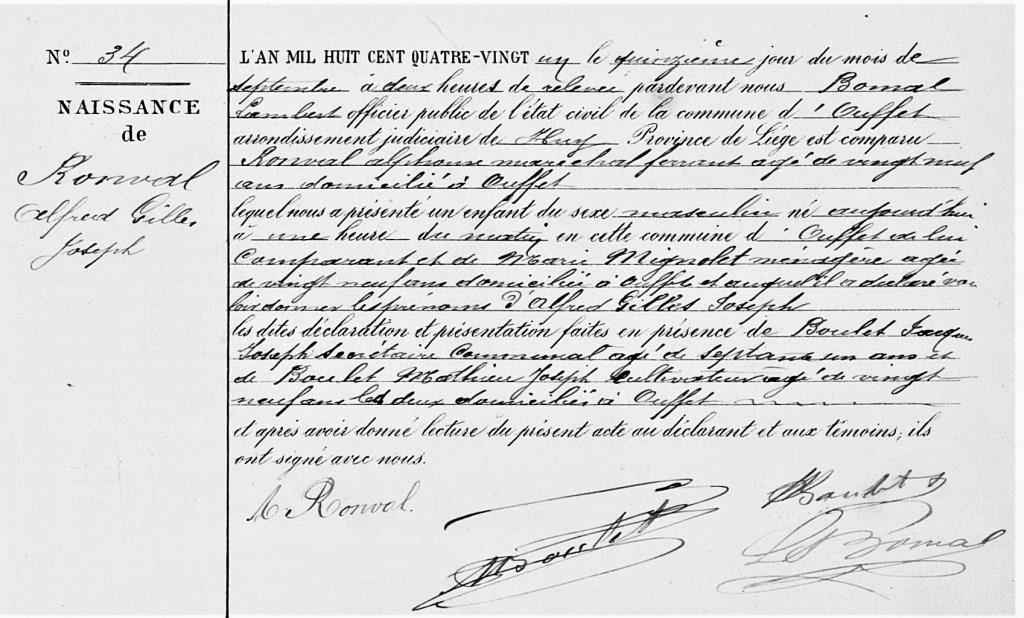 Nº 34
NAISSANCE
de
Ronval
Alfred Gilles
Joseph
L'AN MIL HUIT CENT QUATRE-VINGT un le quinzième jour du mois de
septembre à deux heures de relevée pardevant nous Bomal
Lambert officier public de l'état civil de la commune d'Ouffet
arrondissement judiciaire de Huy Province de Liége est comparu
Ronval alphonse maréchal ferrant agé de vingt neuf
ans domicilié à Ouffet
lequel nous a présenté un enfant du sexe masculin né aujourd'hui
à une heure du matin en cette commune d'Ouffet de lui
Comparant et de Marie Mignolet ménagère agée
de vingt neuf ans domiciliée à Ouffet et auquel il a déclaré vou
loir donner les prénoms d'Alfred Gilles Joseph
les dites déclaration et présentation faites en présence de Boulet Jacques
Joseph Secrétaire Communal agé de septante un ans et
de Boulet Mathieu Joseph Cultivateur agé de vingt
neuf ans les deux domiciliés à Ouffet
et après avoir donné lecture du présent acte au déclarant et aux témoins, ils
ont signé avec nous.
A Ronval.
Boulet
L Bomal